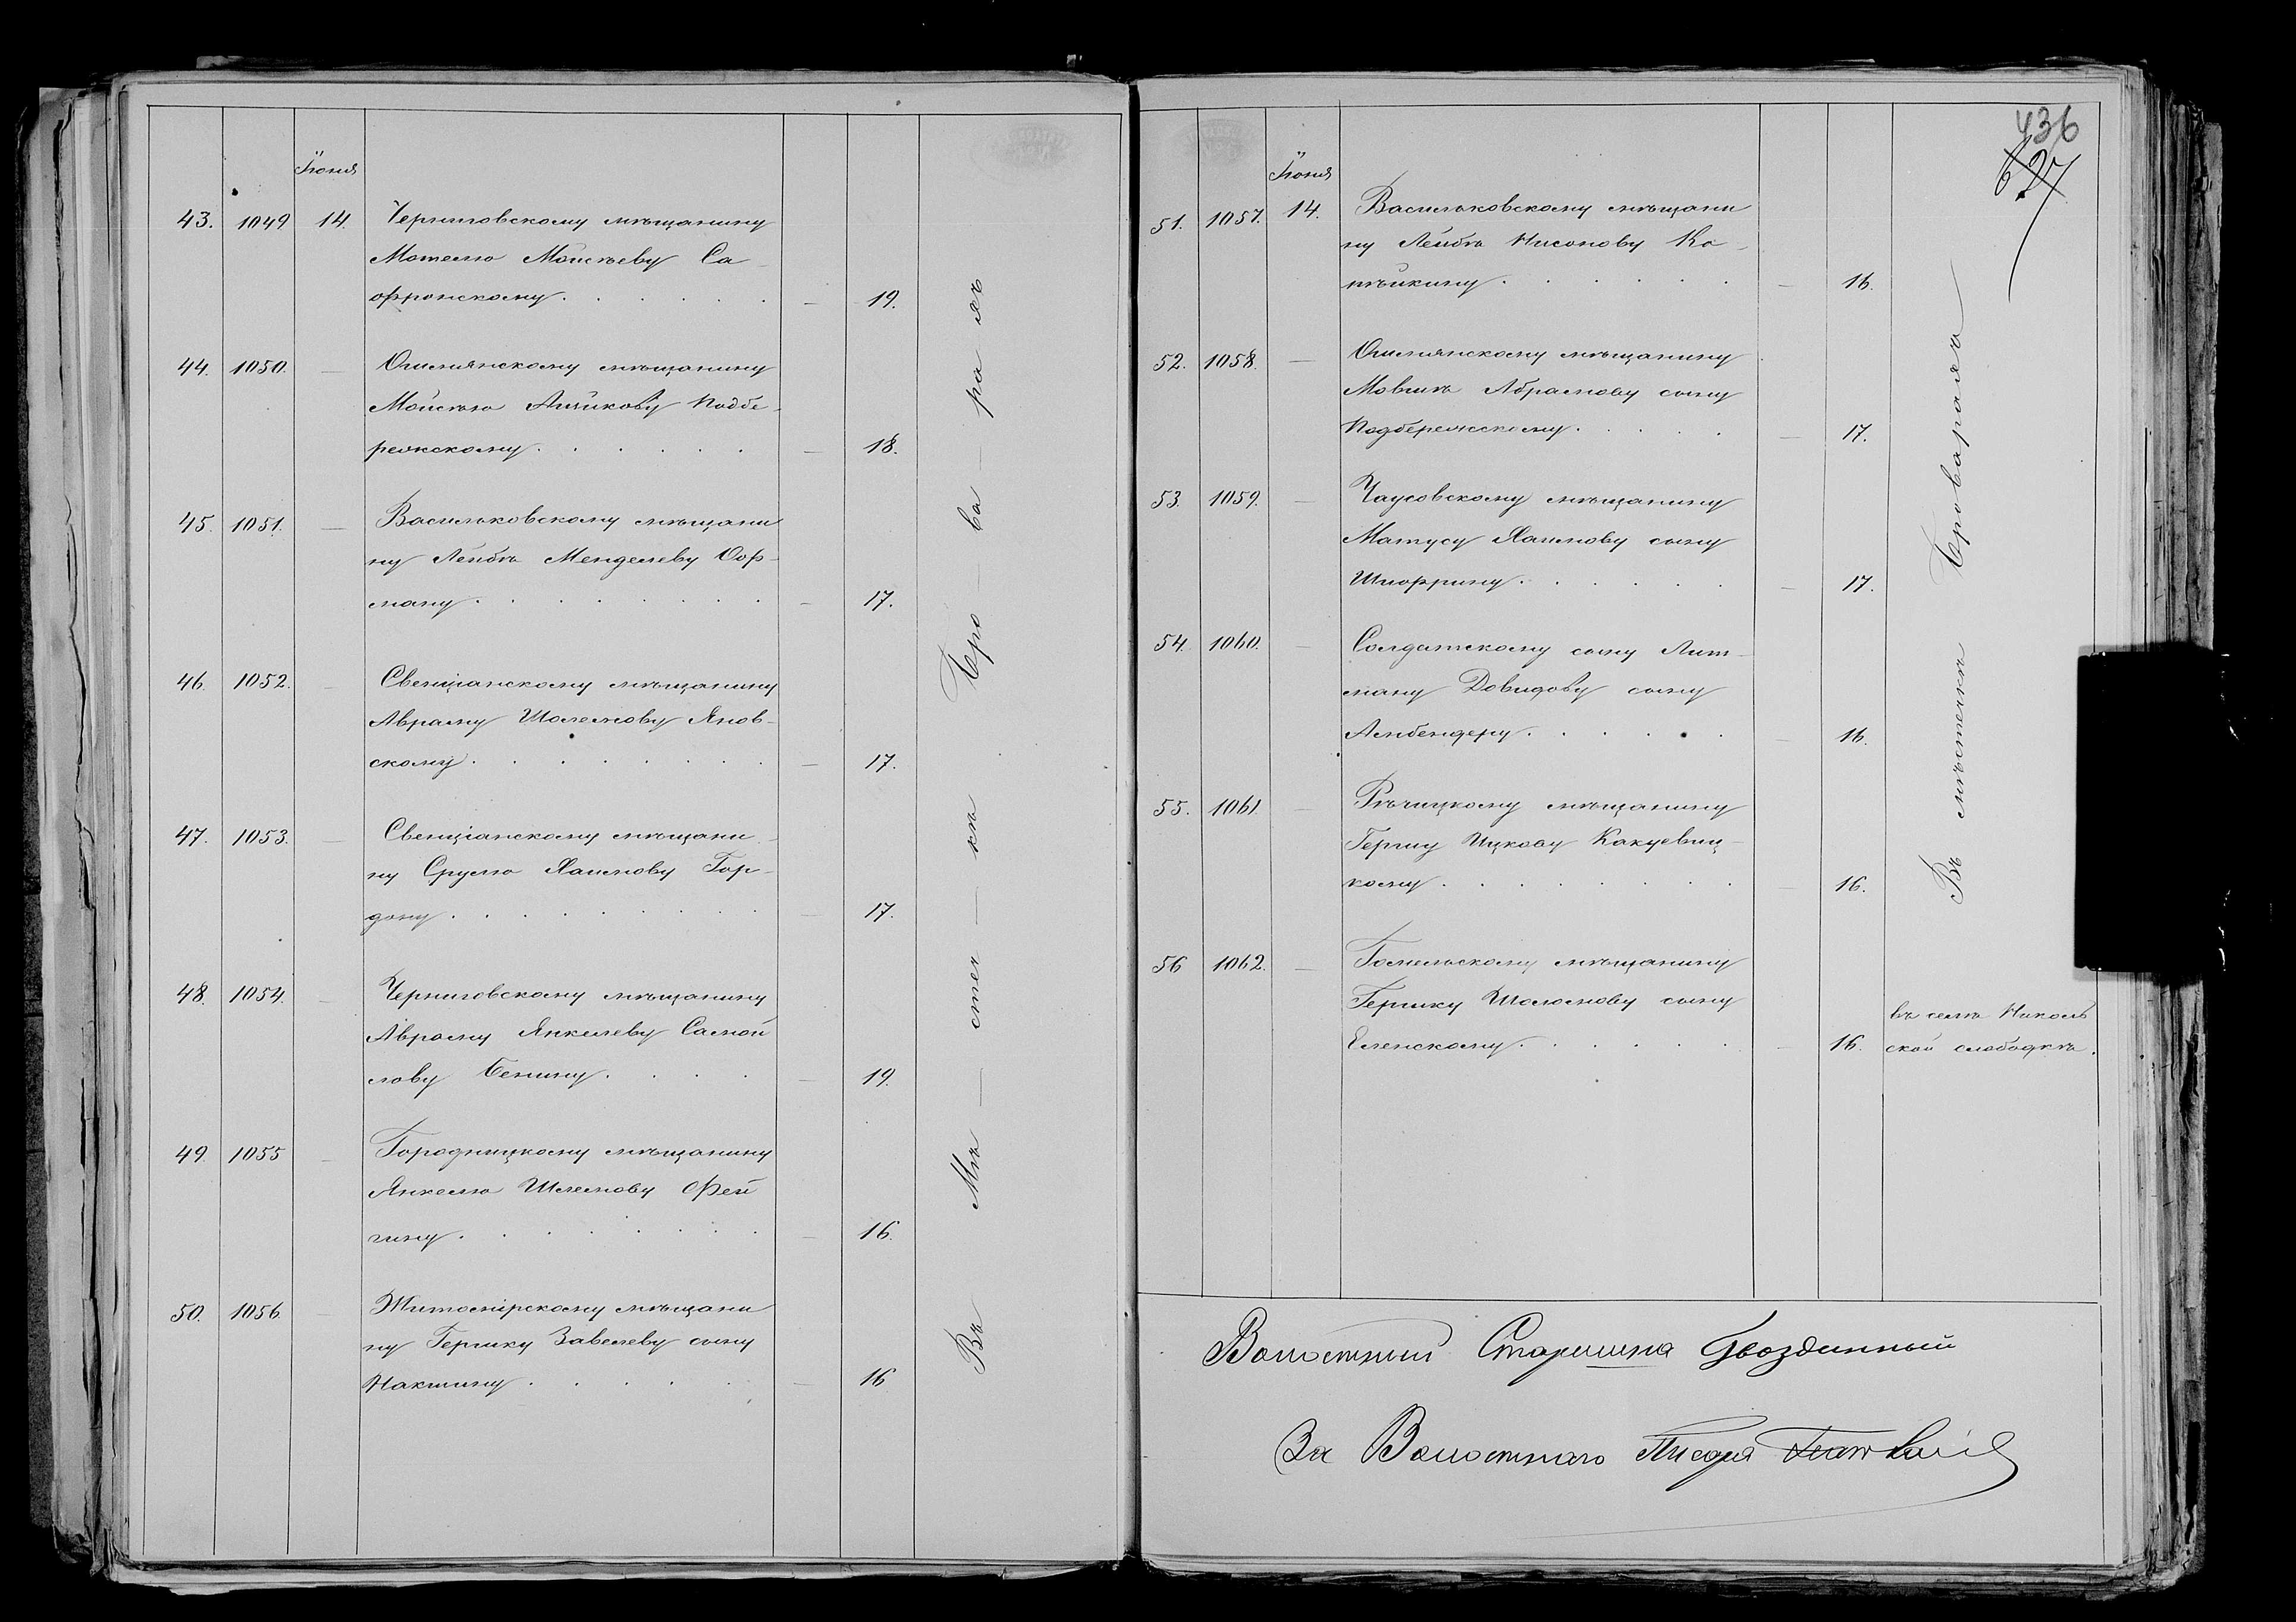 Іюня
43. 1049 14. Черниговскому мѣщанину
Мотелю Мойсѣеву Са
офронскому . . . . . . — 19.
44. 1050. — Ошмянскому мѣщанину
Мойсѣю Ицикову Подбе-
режскому . . . . . — 18.
45. 1051. — Васильковскому мѣщани
ну Лейбѣ Менделеву Оф-
ману . . . . . . . — 17.
46. 1052. — Свенціанскому мѣщанину
Авраму Шолемову Янов-
скому . . . . . . — 17.
47. 1053. — Свенціанскому мѣщани-
ну Срулю Хаимову Гор-
дону . . . . . . . — 17.
48. 1054. — Черниговскому мѣщанину
Аврому Янкелеву Самой
лову Бенину . . . . — 19.
49. 1055 — Городницкому мѣщанину
Янкелю Шлемову Фей
гину . . . . . . . — 16.
50. 1056. — Житомірскому мѣщани
ну Гершку Завелеву сыну
Накшину . . . . . — 16
Въ Мѣ — стеч — кѣ Бро — ва — ра — хъ
436
627
Іюня
51. 1057. 14. Васильковскому мѣщани
ну Лейбѣ Нисонову Ко-
пѣйкину . . . . . — 16.
52. 1058. — Ошмянскому мѣщанину
Мовшѣ Абрамову сыну
Подбережскому . . . . — 17.
53. 1059. — Чаусовскому мѣщанину
Матусу Хаимову сыну
Шифрину . . . . . — 17.
54. 1060. — Солдатскому сыну Лит-
ману Довидову сыну
Альбендеру . . . . . — 16.
55. 1061. — Рѣчицкому мѣщанину
Гершу Ицкову Какуевиц-
кому . . . . . . . — 16.
56 1062. — Гомельскому мѣщанину
Гершку Шоломову сыну
Еленскому . . . . . — 16.
Въ мѣстечкѣ Броварахъ
въ селѣ Николь
ской слободкѣ.
Волостный Старшина Гвоздинный
За Волостнаго Писаря